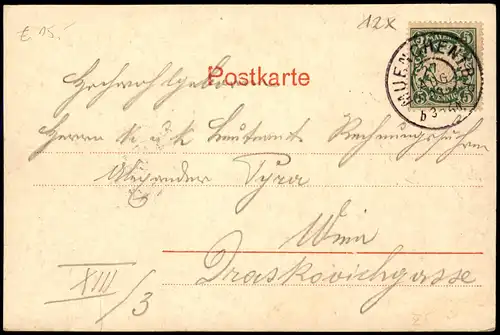 £ 15.-
12x
Postkarte
MUENCHEN
5 5
PFENNIG
Hochwohlgeboren
Herrn k u k Leutnant Rechnungsführer
Alexander Tyra
Wien
Draskovichgasse
XIII
/3